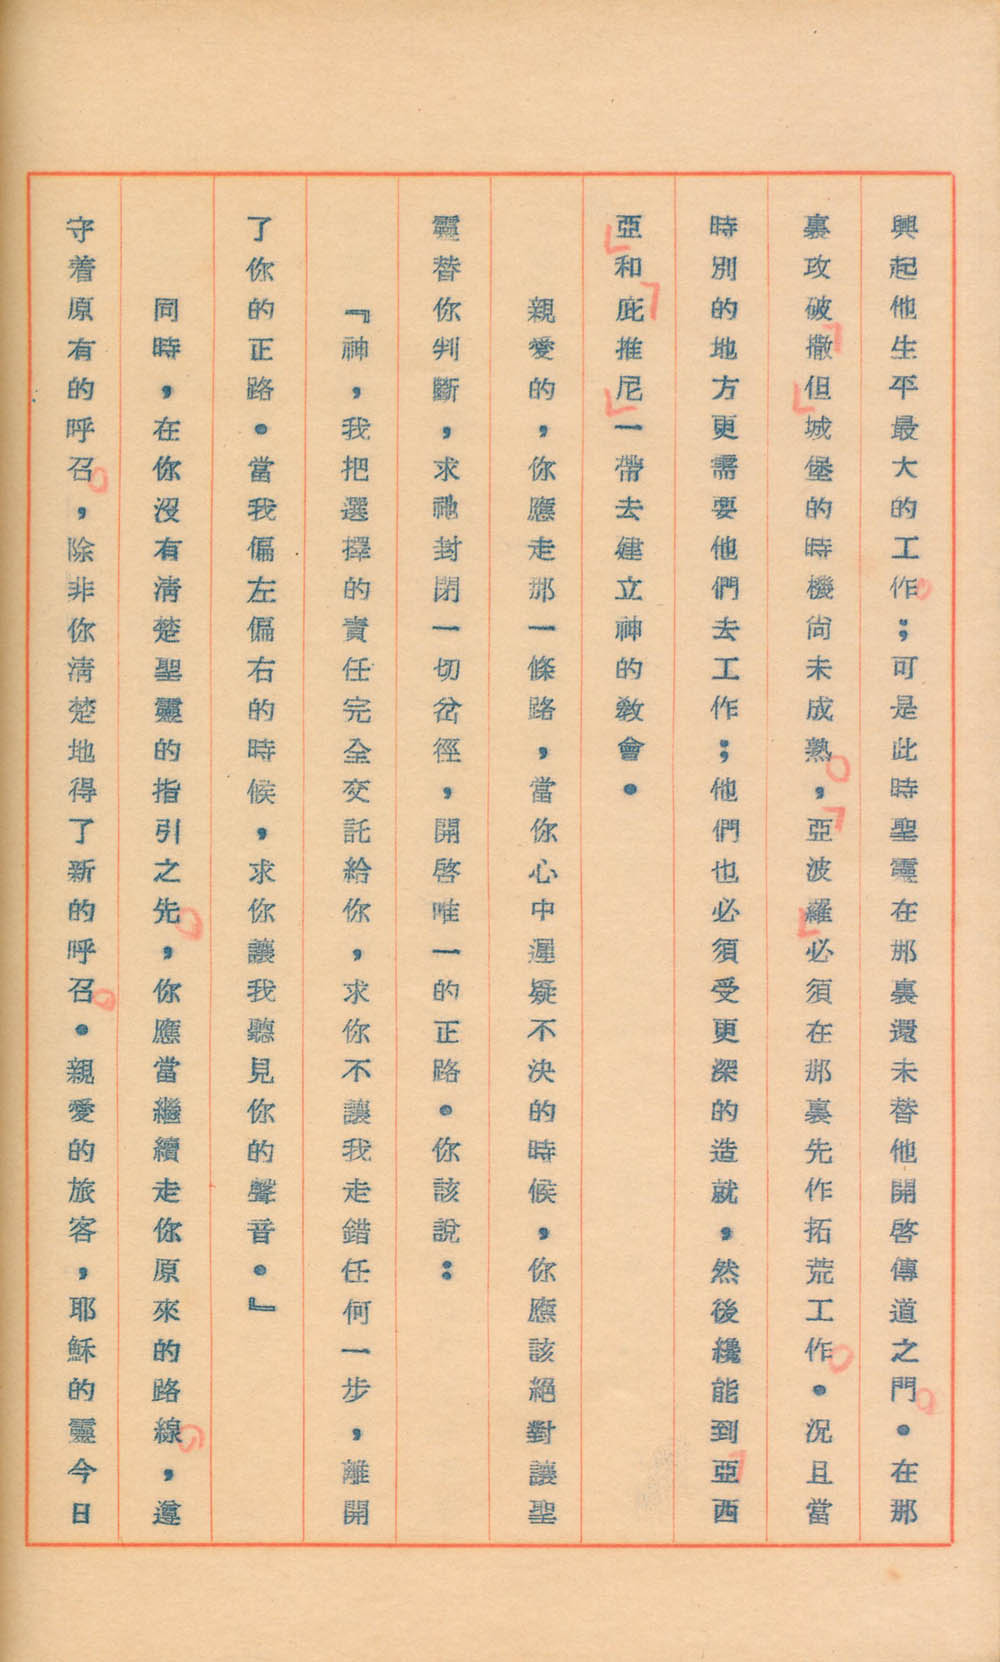 興起他生平最大的工作；可是此時聖靈在那裏還未替他開啓傳道之門。在那
裏攻破撒但城堡的時機尚未成熟，亞波羅必須在那裏先作拓荒工作。況且當
時別的地方更需要他們去工作；他們也必須受更深的造就，然後纔能到亞西
亞和庇推尼一帶去建立神的敎會。
親愛的，你應走那一條路，當你心中遲疑不決的時候，你應該絕對讓聖
靈替你判斷，求祂封閉一切岔徑，開啓唯一的正路。你該說：
『神，我把選擇的責任完全交託給你，求你不讓我走錯任何一步，離開
了你的正路。當我偏左偏右的時候，求你讓我聽見你的聲音。』
同時，在你沒有淸楚聖靈的指引之先，你應當繼續走你原來的路線，遵
守着原有的呼召，除非你淸楚地得了新的呼召。親愛的旅客，耶穌的靈今日